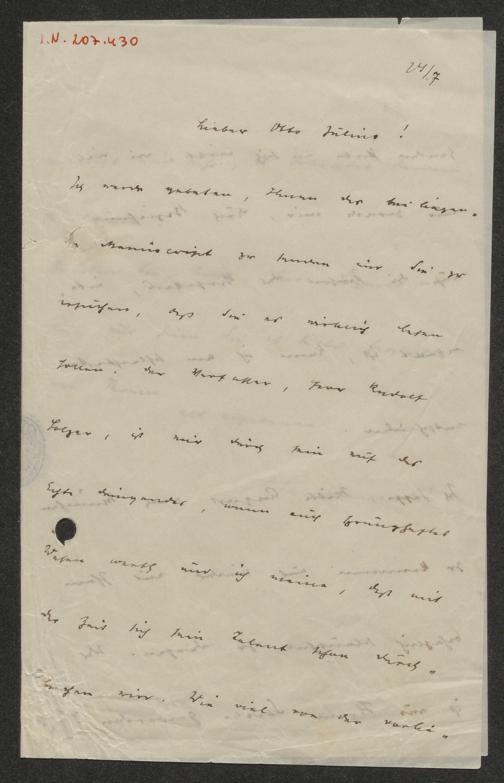 I.N. 207.430
24/7
Lieber Otto Julius!
Ich werde gebeten, Ihnen das beiliegen-
de Manuscript zu senden und Sie zu
ersuchen, daß Sie es wirklich lesen
sollen. Der Verfasser, Herr Rudolf
Holzer, ist mir durch sein auf das
Echte dringendes, wenn auch sprunghaftes
Wesen werth und ich meine, daß mit
der Zeit sich sein Talent schon durch-
brechen wird. Wie viel von der vorlie-